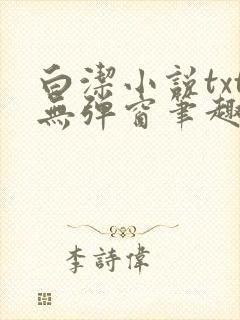 白潔小說txt
無彈窗筆趣
李詩偉